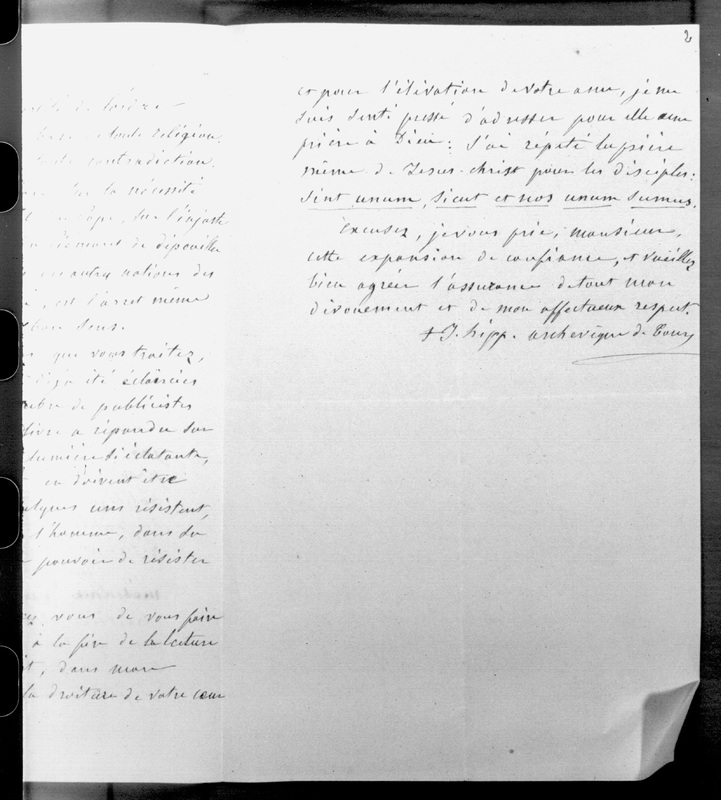 de l'ordre
toute religion,
contradiction.
la nécessité
sur l'injuste
de dépouiller
autres nations des
est l'arrêt même
bon sens.
que vous traitez,
déja été éclaircies
de publicistes
livre a répandu sur
lumière si éclatante,
en doivent être
quelques uns résistent,
l'homme, dans sa
pouvoir de résister
vous de vous faire
à la fin de la lecture
dans mon
la droiture de votre cœur
2
et pour l'élévation de votre ame, je me
suis senti pressé d'adresser pour elle une
prière à Dieu: J'ai répété la prière
même de Jesus-christ pour les disciples:
Sint unum, sicut et nos unum sumus.
Excusez, je vous prie, monsieur,
cette expansion de confiance, et veuillez
bien agréer l'assurance de tout mon
dévouement et de mon affectueux respect.
† J. hipp. archevêque de Tours